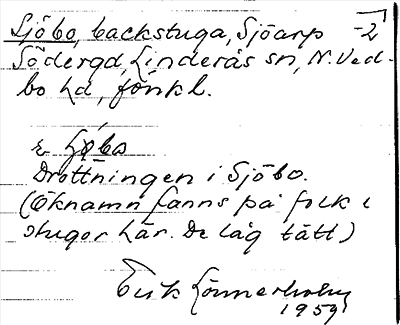 Sjöbo, backstuga, Sjöarp -2
Södergd, Linderås sn, N. Ved-
bo hd, Jönkl.
Drottningen i Sjöbo.
(Öknamn fanns på folk i
stugor här. De låg tätt)
Erik Lönnerholm
1959